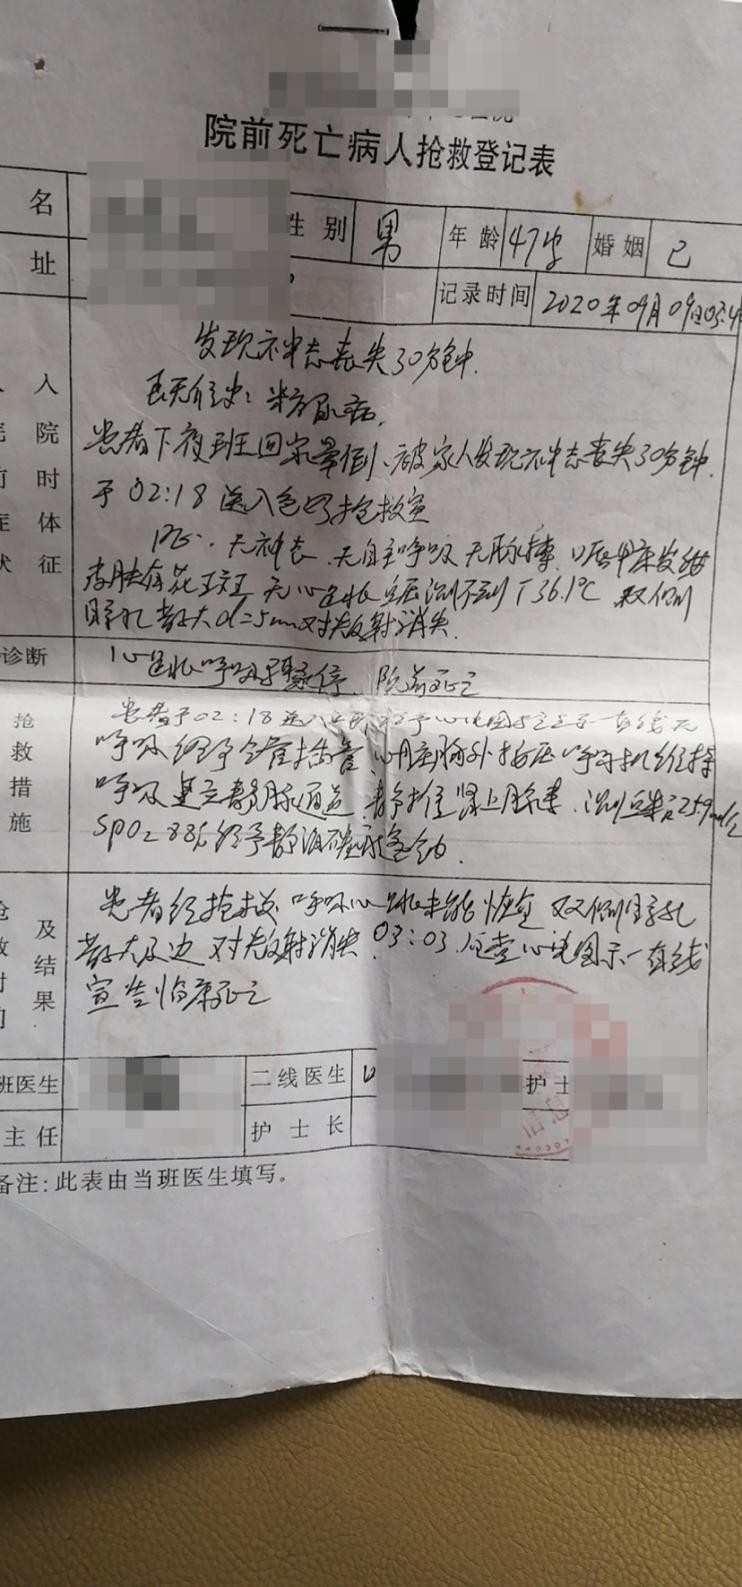 院前死亡病人抢救登记表
名 性别 男 年龄 47岁 婚姻 已
址 记录时间 2020年09月09日03:4
发现神志丧失30分钟.
既往史: 糖尿病.
患者下夜班回家晕倒、被家人发现神志丧失30分钟.
于02:18送入 抢救室
PE: 无神志、无自主呼吸 无脉搏、口唇甲床发绀
皮肤有花斑 无心跳 血压测不到 T 36.1℃ 双侧
瞳孔散大d=5mm 对光反射消失.
入院时体征
诊断 心跳呼吸骤停 院前死亡
抢救措施
患者于02:18送入 心电图示 一直线 无
呼吸 给予气管插管、心脏胸外按压 呼吸机维持
呼吸 建立静脉通道 静推肾上腺素、测血糖
SPO₂ 88% 给予静滴碳酸氢钠.
及结果
患者经抢救 呼吸心跳未能恢复 双侧瞳孔
散大及边 对光反射消失 03:03 复查心电图示一直线
宣告临床死亡
班医生 二线医生 护士
主任 护士长
备注:此表由当班医生填写。